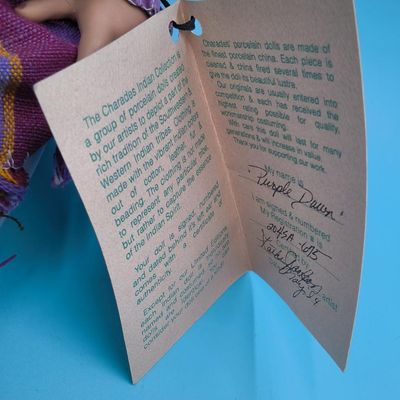 The Charades Indian Collection is
a group of porcelain dolls created
by our artists to depict a part of the
rich tradition of the Southwestern &
Western Indian tribes. Clothing is
made with the vibrant Indian colors
out of cotton, leather, fur &
beading. The clothing is not made
to represent any particular tribe,
but rather to capture the essence
of the Indian Spirit.
Your doll is signed, numbered
and dated behind it's left ear and
comes with a certificate of
authenticity.
Except for our Limited Editions
each Indian doll is
named and
dolls are
consider your doll
Charades' porcelain dolls are made of
the finest porcelain china. Each piece is
cleaned & china fired several times to
give the doll its beautiful lustre.
Our originals are usually entered into
competition & each has received the
highest rating possible for quality,
workmanship costuming.
With care this doll will last for many
generations & will increase in value.
Thank you for supporting our work.
My name is
"Purple Dawn"
I am signed & numbered
My Registration # is
by
artist